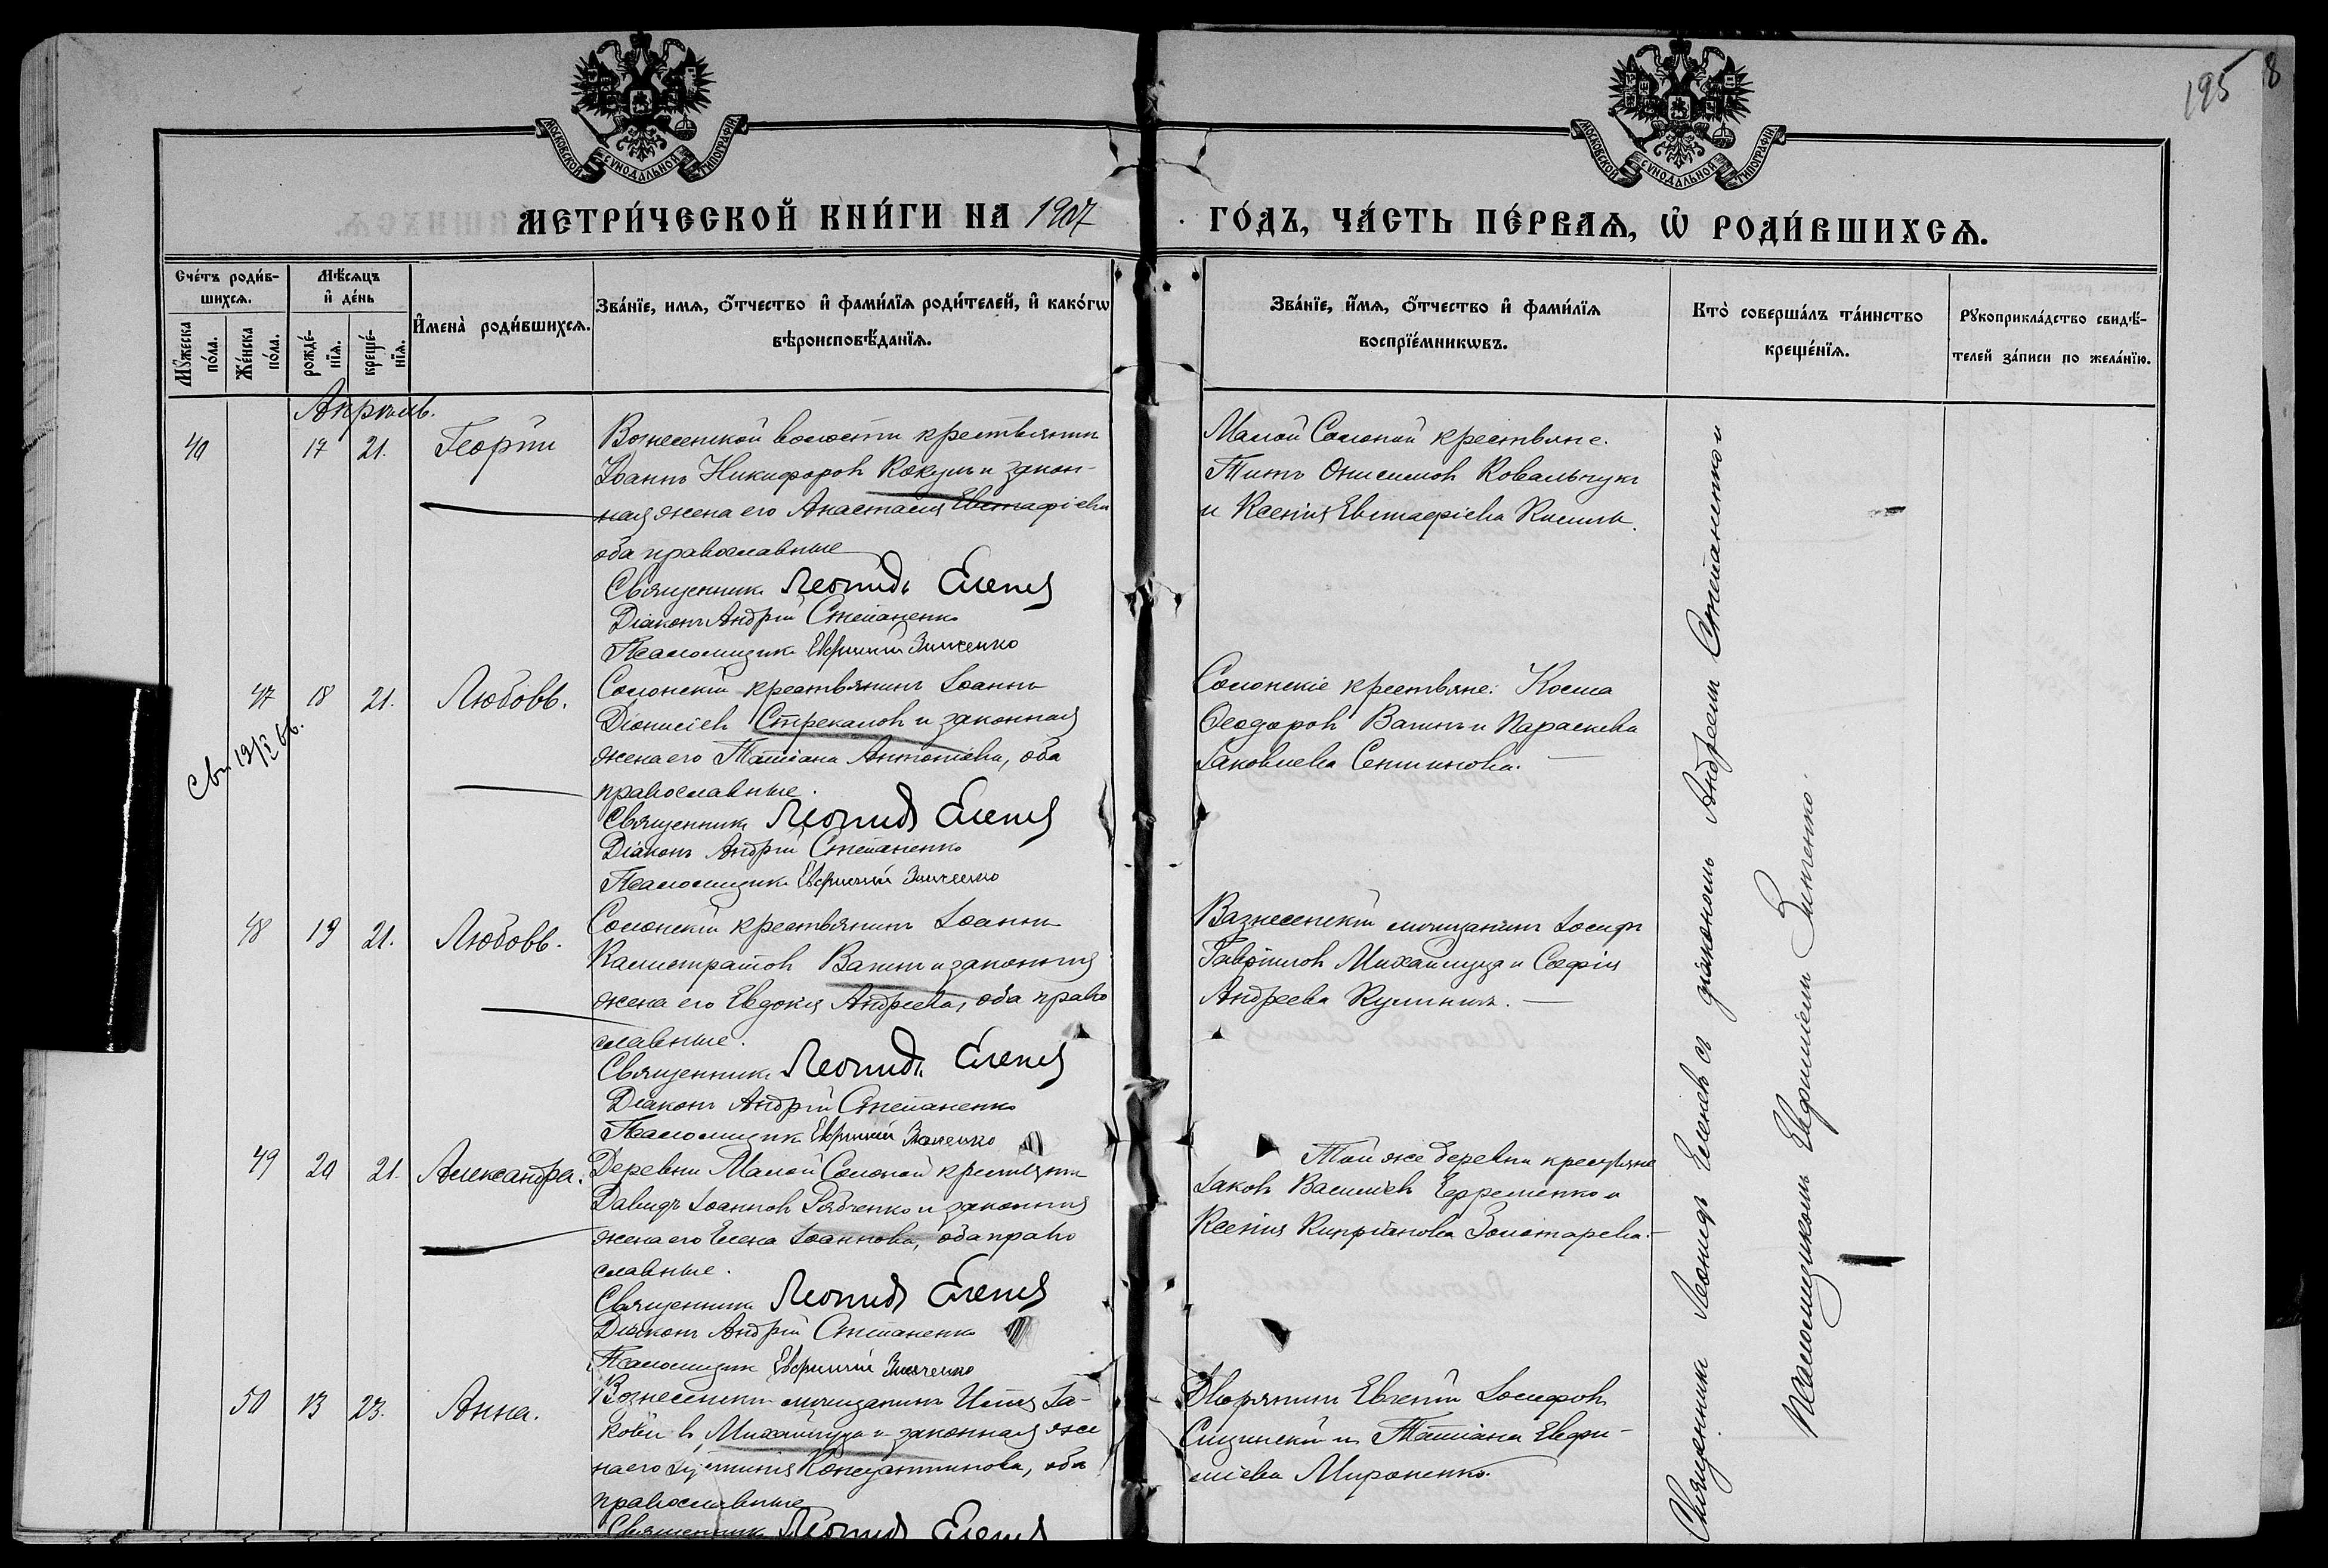 МОСКОВСКОЙ СУНОДАЛЬНОЙ ТИПОГРАФІИ
МОСКОВСКОЙ СУНОДАЛЬНОЙ ТИПОГРАФІИ
195
8
МЕТРИ́ЧЕСКОЙ КНИ́ГИ НА 1907
ГО́ДЪ, ЧА́СТЬ ПЕ́РВАѦ, Ѡ҆ РОДИ́ВШИХСѦ.
Сче́тъ роди́в-
шихсѧ.
Мꙋ́жеска
по́ла.
Же́нска
по́ла.
Мѣ́сѧцъ
и҆ де́нь
рожде́-
нїѧ.
креще́-
нїѧ.
И҆мена̀ роди́вшихсѧ.
Зва́нїе, имѧ, ѻ҆́тчество и҆ фами́лїѧ роди́телей, и҆ како́гѡ
вѣроисповѣ́данїѧ.
Зва́нїе, и҆́мѧ, ѻ҆́тчество и҆ фами́лїѧ
воспрїе́мникѡвъ.
Кто̀ соверша́лъ та́инство
креще́нїѧ.
Рꙋкоприкла́дство свидѣ́-
телей за́писи по жела́нїю.
Апрѣль.
40 17 21. Георгій
Вознесенской волости крестьянинъ
Іоаннъ Никифоровъ Кокулъ и закон-
ная жена его Анастасія Евстафіева
оба православные
Священникъ Леонидъ
Діаконъ Андрей Степаненко
Псаломщикъ Евфимій Зинченко
Малой Солоной крестьяне:
Титъ Онисимовъ Ковальчукъ
и Ксенія Евстафіева
47 18 21. Любовь.
Св. 12/X 66.
Солонскій крестьянинъ Іоаннъ
Діонисіевъ Стрекаловъ и законная
жена его Татіана Антоніева, оба
православные.
Священникъ Леонидъ
Діаконъ Андрей Степаненко
Псаломщикъ Евфимій Зинченко
Солонскіе крестьяне: Косма
Ѳеодоровъ Вагинъ и Параскева
Іаковлева
48 19 21. Любовь.
Солонскій крестьянинъ Іоаннъ
Калистратовъ Вагинъ и законная
жена его Евдокія Андреева, оба право
славные.
Священникъ Леонидъ
Діаконъ Андрей Степаненко
Псаломщикъ Евфимій Зинченко
Вознесенскій мѣщанинъ Іосифъ
Гавріиловъ Михайлуца и Софія
Андреева Кулиничъ.
49 20 21. Александра.
Деревни Малой Солоной крестьянинъ
Давидъ Іоанновъ Рябченко и законная
жена его Елена Іоаннова, оба право
славные.
Священникъ Леонидъ
Діаконъ Андрей Степаненко
Псаломщикъ Евфимій Зинченко
Той же деревни крестьяне
Іаковъ Васильевъ Ефременко и
Ксенія Кипріанова Золотарева.
50 13 23. Анна.
Вознесенскій мѣщанинъ Илія Іа-
ковлевъ Михайлуца и законная же
на его Іустинія Константинова, оба
православные
Священникъ Леонидъ
Дворянинъ Евгеній Іосифовъ
Сицинскій и Татіана Евфи-
міева Мироненко.
Священникъ Леонидъ съ діакономъ Андреемъ Степаненко и
Псаломщикомъ Евфиміемъ Зинченко.